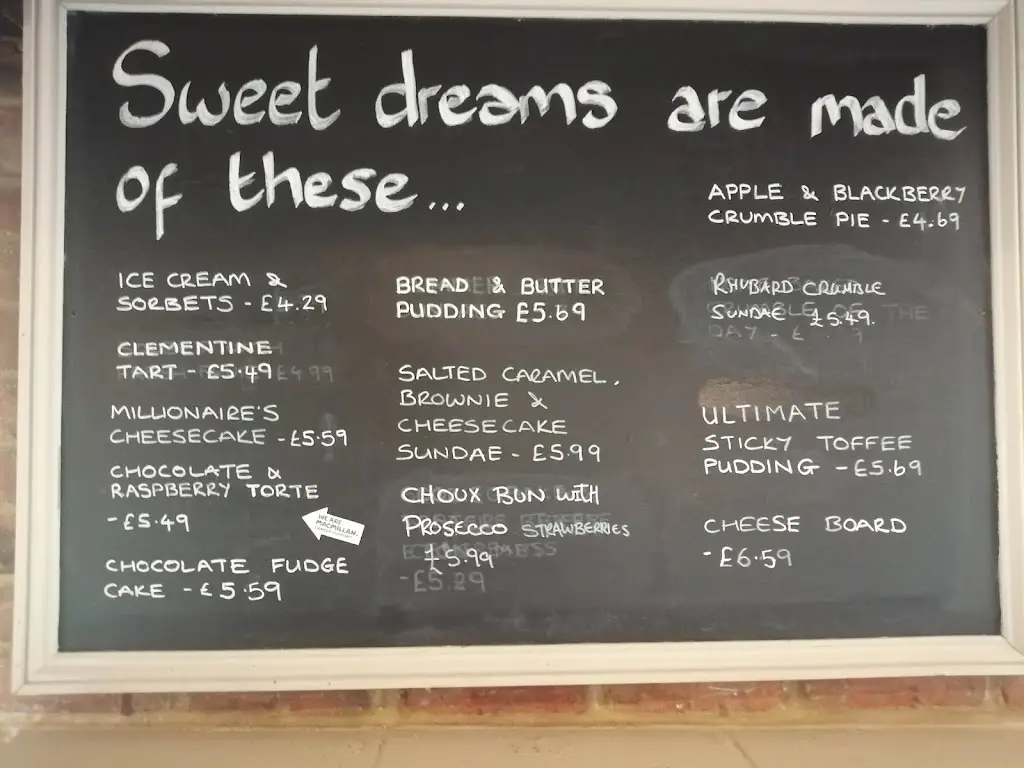 Sweet dreams are made
of these...
ICE CREAM &
SORBETS - £4.29
CLEMENTINE
TART - £5.49
MILLIONAIRE'S
CHEESECAKE - £5.59
CHOCOLATE &
RASPBERRY TORTE
- £5.49
WE ARE
MACMILLAN.
CANCER SUPPORT
CHOCOLATE FUDGE
CAKE - £5.59
BREAD & BUTTER
PUDDING £5.69
SALTED CARAMEL,
BROWNIE &
CHEESECAKE
SUNDAE - £5.99
CHOUX BUN WITH
PROSECCO STRAWBERRIES
£5.99
- £5.29
APPLE & BLACKBERRY
CRUMBLE PIE - £4.69
RHUBARD CRUMBLE
SUNDAE £5.49.
ULTIMATE
STICKY TOFFEE
PUDDING - £5.69
CHEESE BOARD
- £6.59